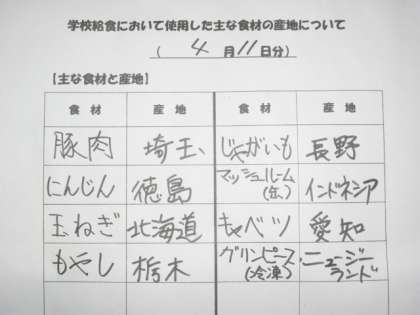 学校給食において使用した主な食材の産地について
( 4 月 11 日分)
【主な食材と産地】
食 材 産 地 食 材 産 地
豚肉 埼玉 じゃがいも 長野
にんじん 徳島 マッシュルーム(缶) インドネシア
玉ねぎ 北海道 キャベツ 愛知
もやし 栃木 グリンピース(冷凍) ニュージーランド